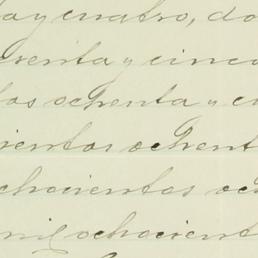 ay cuatro, do
renta y cinco
tos ochenta y c
cientos ochent
chocientos oc
mil ochocient